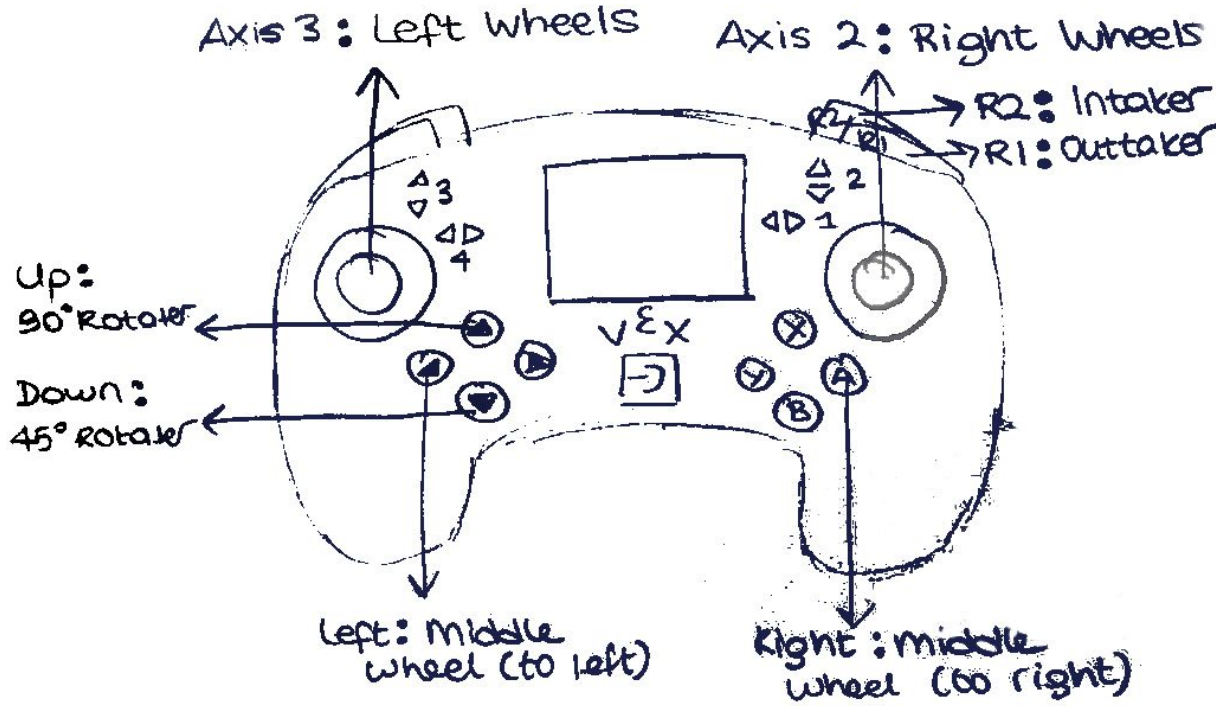 Axis 3: Left Wheels
Axis 2: Right Wheels
R2: Intaker
R1: Outtaker
R2
R1
3
4
2
1
Up:
90° Rotater
Down:
45° Rotater
VEX
X
Y
A
B
Left: Middle
wheel (to left)
Right: middle
wheel (to right)